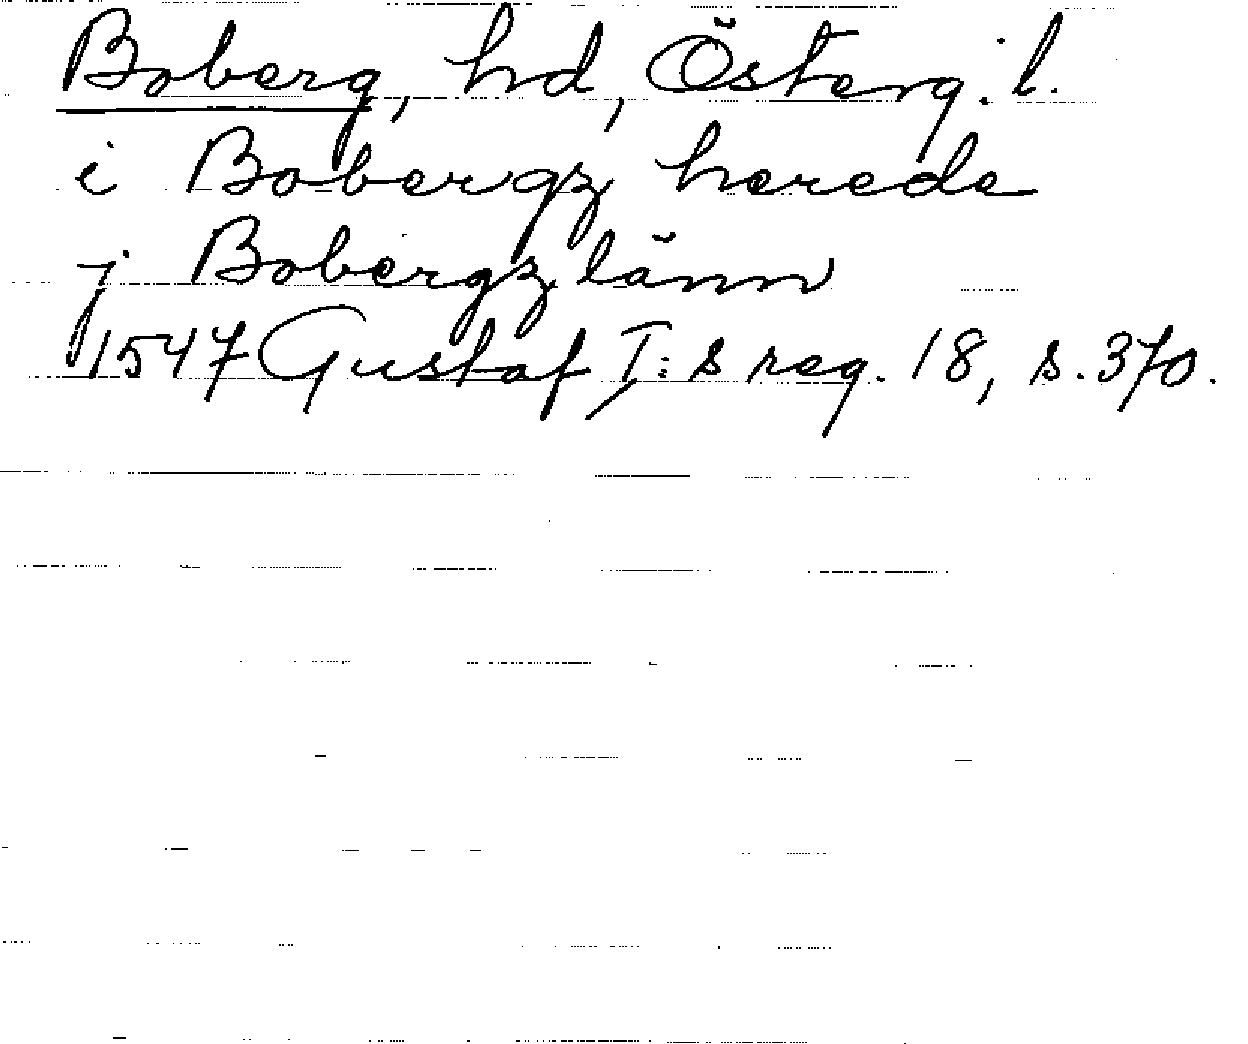 Boberg, hd, Österg. l.
i Bobergz herede
j Bobergz länn
1547 Gustaf I:s reg. 18, s. 370.